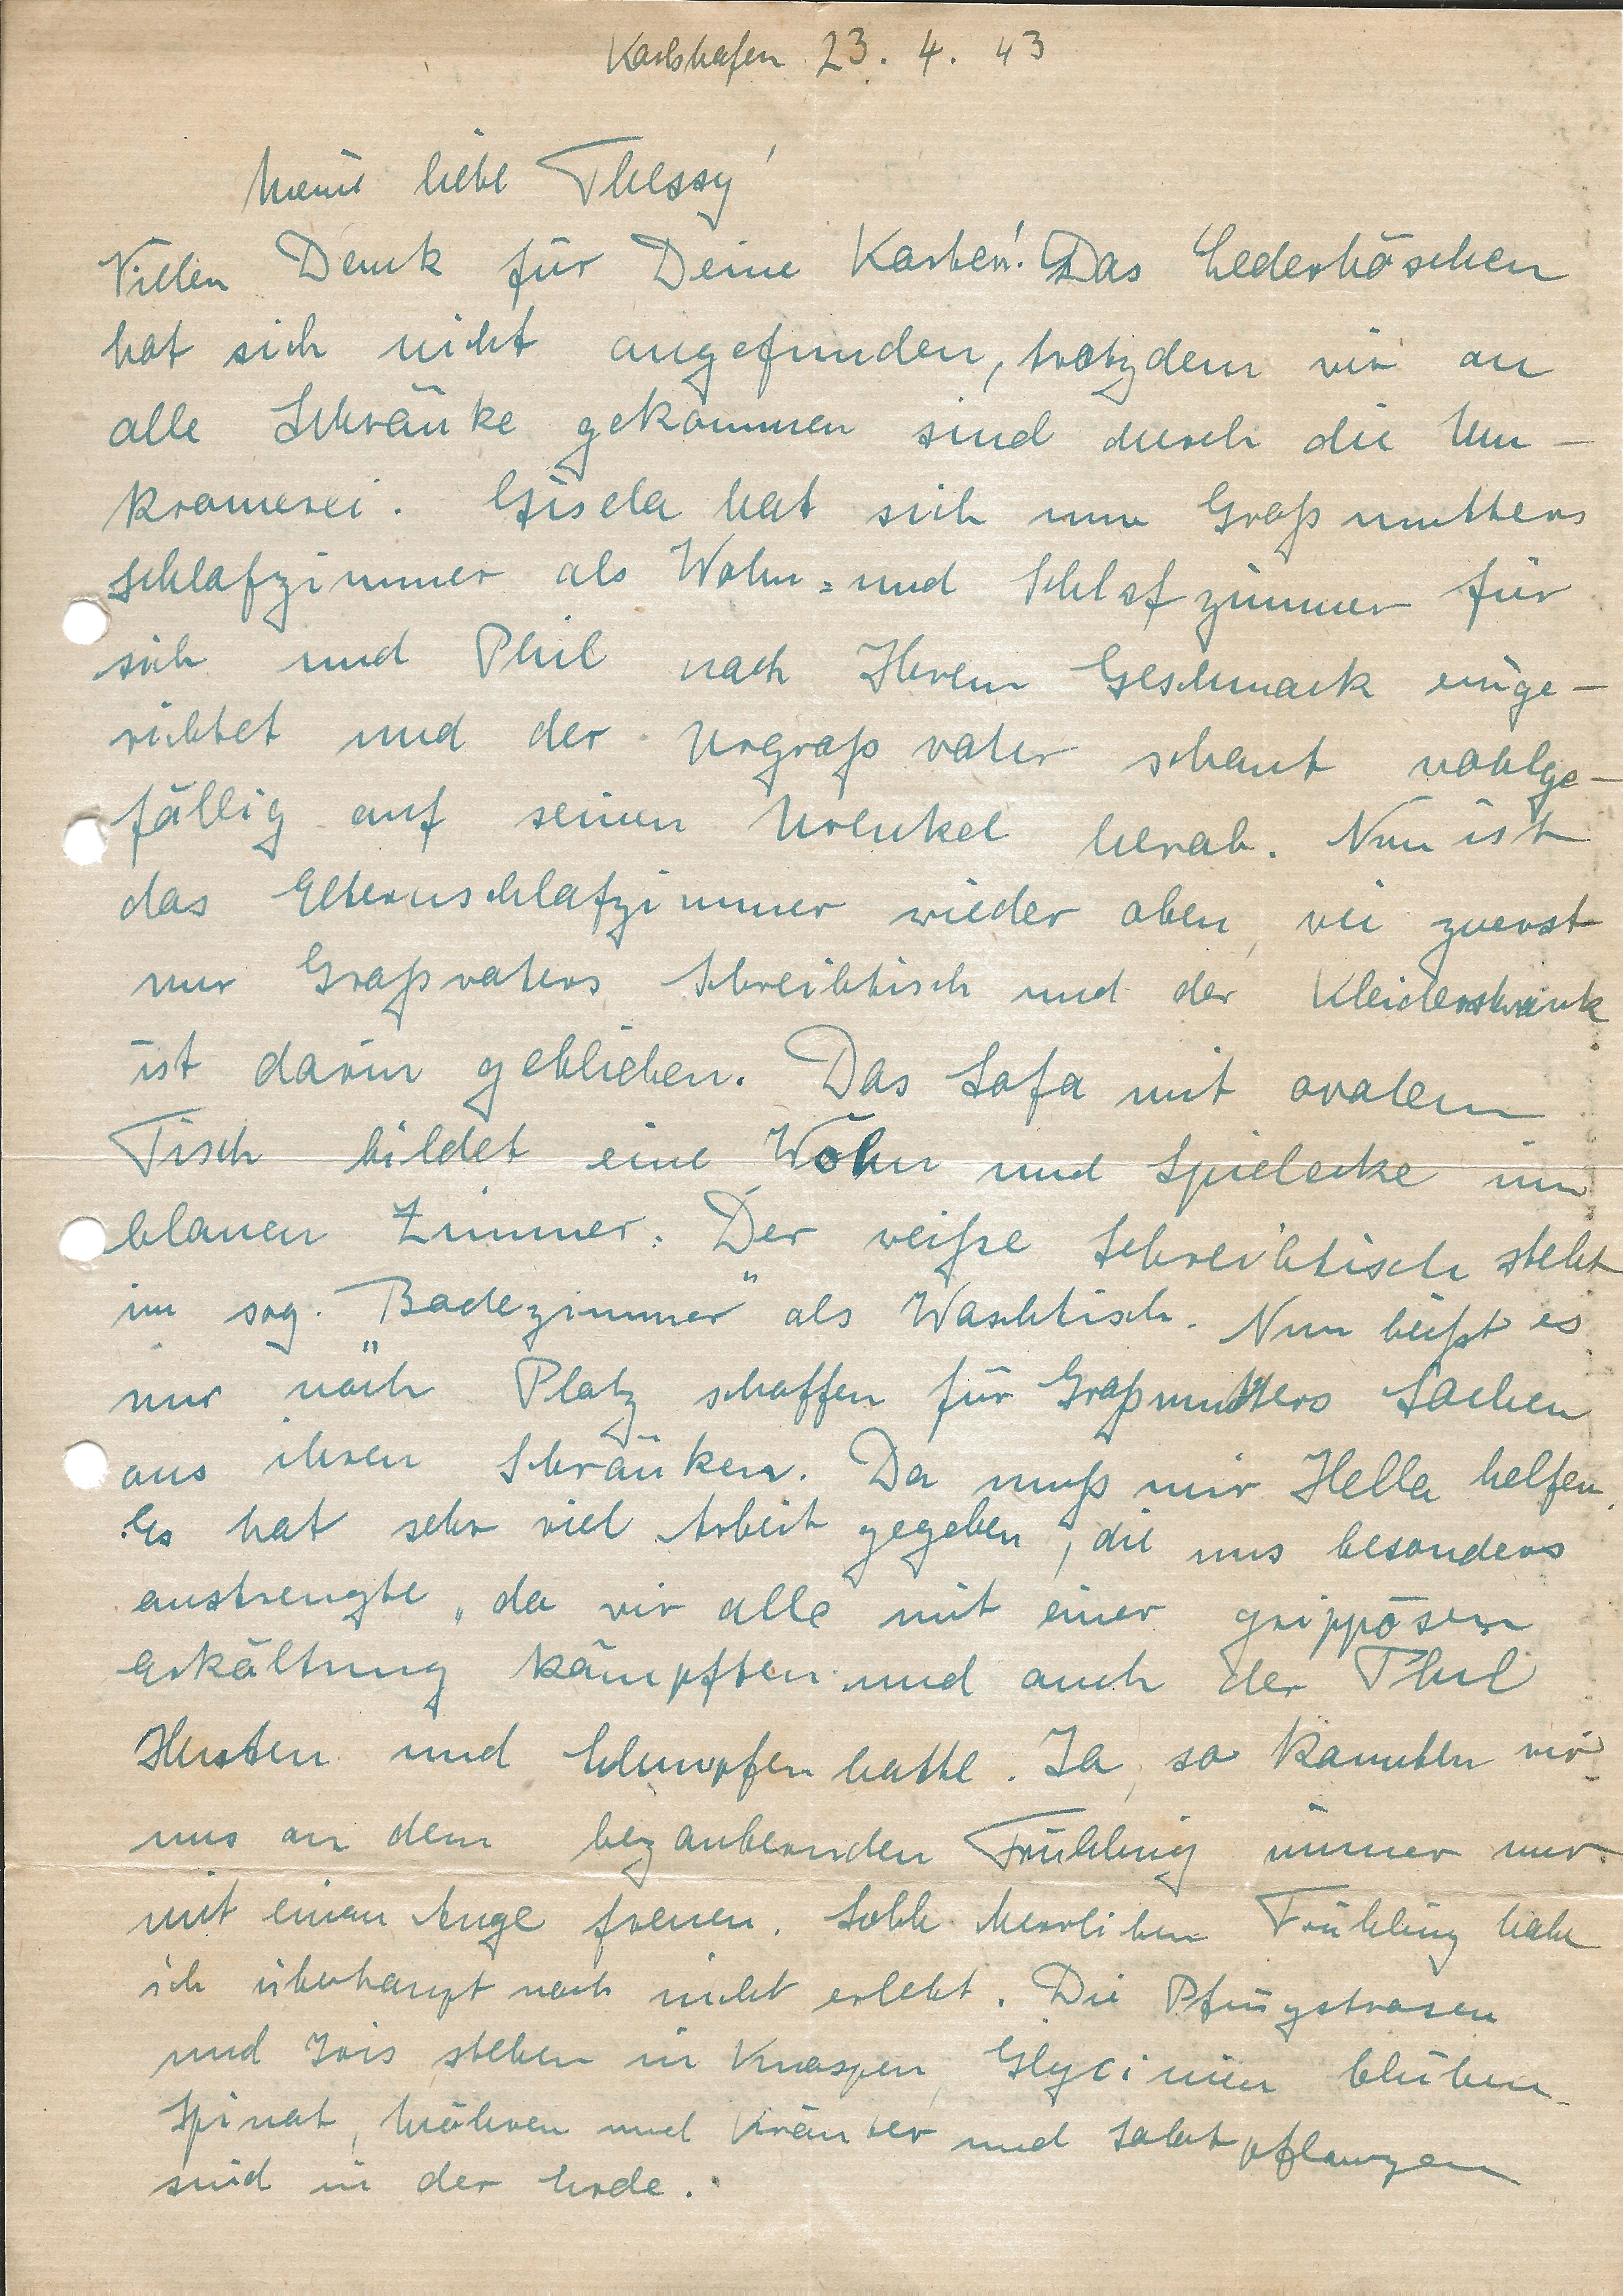 Karlshafen 23. 4. 43
Meine liebe Thessy!
Vielen Dank für Deine Karten! Das Lederhöschen
hat sich nicht angefunden, trotzdem wir an
alle Schränke gekommen sind durch die Um-
kramerei. Gisela hat sich nun Großmutters
Schlafzimmer als Wohn- und Schlafzimmer für
sich und Phil nach Ihrem Geschmack einge-
richtet und der Urgroßvater schaut wohlge-
fällig auf seinen Urenkel herab. Nun ist
das Elternschlafzimmer wieder oben, wie zuerst
nur Großvaters Schreibtisch und der Kleiderschrank
ist darin geblieben. Das Sofa mit ovalem
Tisch bildet eine Wohn und Spielecke im
blauen Zimmer. Der weiße Schreibtisch steht
im sog. "Badezimmer" als Waschtisch. Nun heißt es
nur noch Platz schaffen für Großmutters Sachen
aus ihren Schränken. Da muß mir Hella helfen.
Es hat sehr viel Arbeit gegeben, die uns besonders
anstrengte, da wir alle mit einer grippösen
Erkältung kämpften und auch der Phil
Husten und Schnupfen hatte. Ja, so konnten wir
uns an dem bezaubernden Frühling immer nur
mit einem Auge freuen. Solch herrlichen Frühling habe
ich überhaupt noch nicht erlebt. Die Pfingstrosen
und Iris stehen in Knospen, Glycinien blühen
Spinat, Möhren und Kräuter und Salatpflanzen
sind in der Erde.